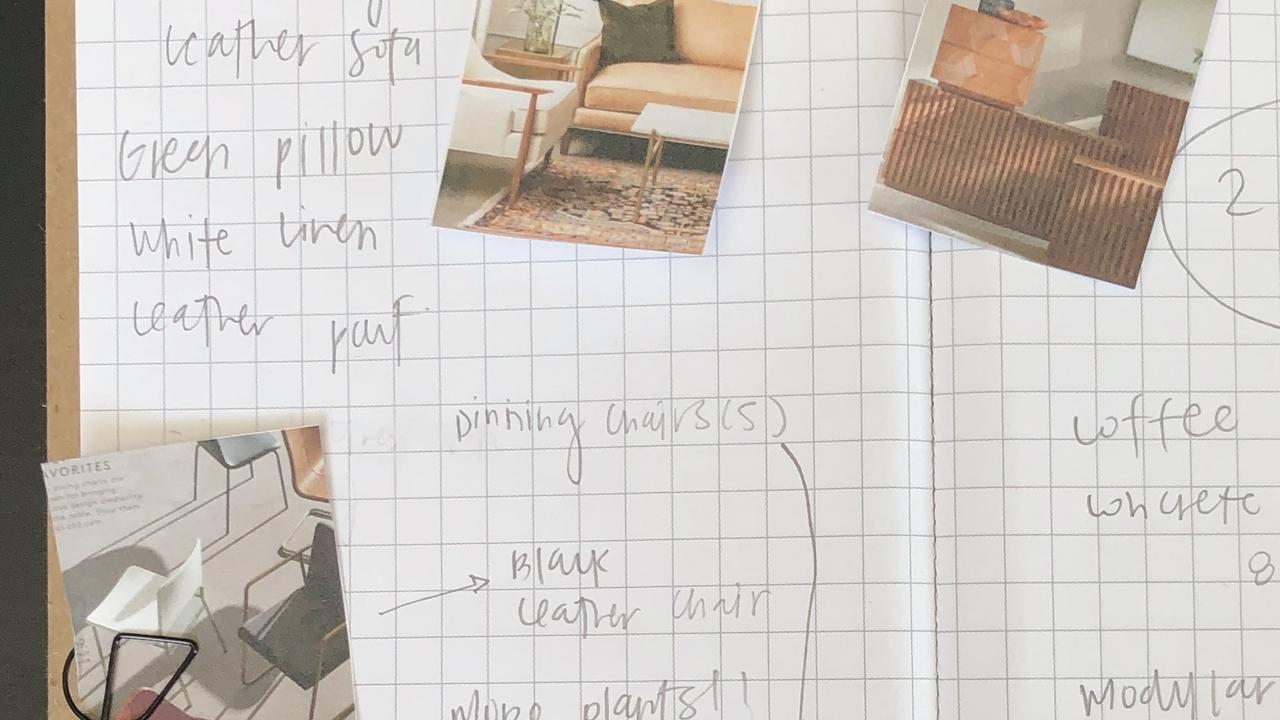 leather sofa
Green pillow
White linen
leather pouf
Dinning chairs(5)
Black
leather chair
More plants!!
2
coffee
concrete
8
modular
AVORITES